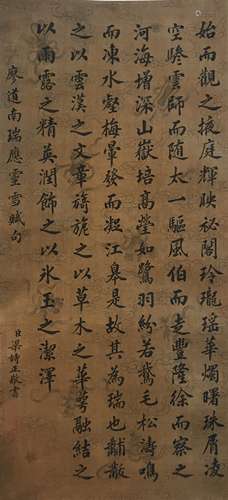 始而觀之掖庭輝映祕閣玲瓏瑶華燭曙珠屑凌
空驂雲師而随太一驅風伯而走豐隆徐而察之
河海增深山嶽培高瑩如鷺羽紛若鵞毛松濤鳴
而凍水壑梅暈發而凝江皋是故其為瑞也黼黻
之以雲漢之文章旖旎之以草木之華萼融結之
以雨露之精英潤飾之以氷玉之潔澤
廖道南瑞應靈雪賦句
臣梁詩正敬書